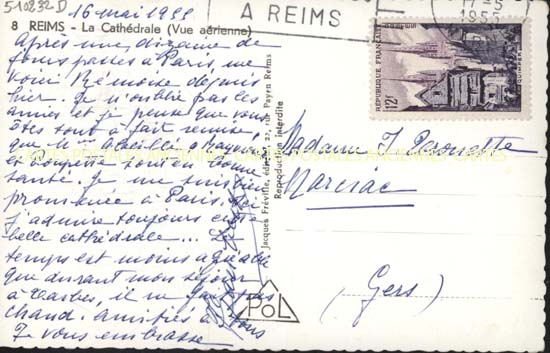 510232D
16 mai 1955
A REIMS
17-5
1955
8 REIMS - La Cathédrale (Vue aérienne)
REPUBLIQUE FRANÇAISE
12F
QUIMPER
Après une dizaine de
jours passés à Paris, me
voici Rémoise depuis
hier. Je n'oublie pas les
amies et je pense que vous
êtes tout à fait remise,
que
et
santé. Je me suis bien
promenée à Paris. Ici
j'admire toujours cette
belle cathédrale... Le
temps est moins agréable
que durant mon séjour
à Tarbes, il ne fait pas
chaud. Amitiés à tous
Je vous embrasse
Jacques Fréville, édit., 22, rue Payen Reims
Reproduction Interdite
PoL
Madame J.
Marciac
(Gers)